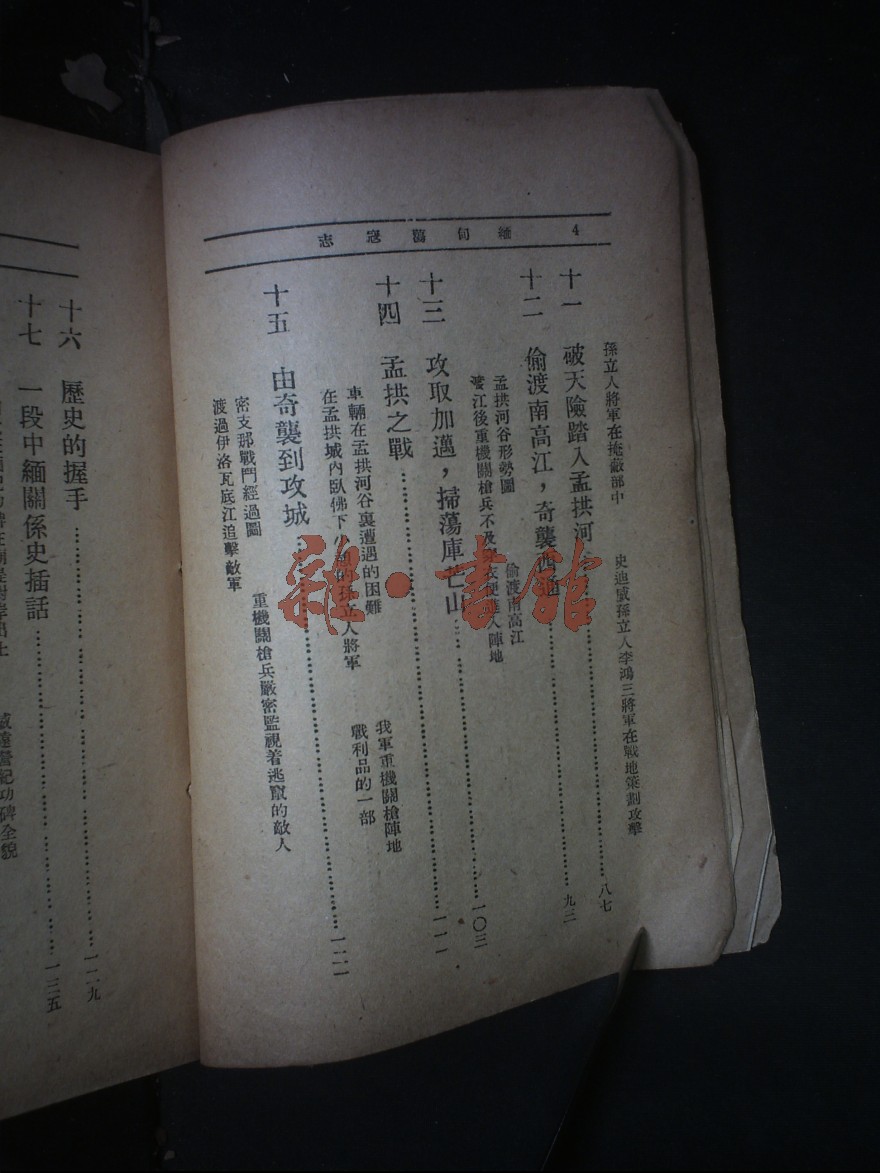 4 緬甸蕩寇志
孫立人將軍在掩蔽部中 史迪威孫立人李鴻三將軍在戰地策劃攻擊
十一 破天險踏入孟拱河 八七
十二 偷渡南高江,奇襲西通 九三
孟拱河谷形勢圖 偷渡南高江
江後重機關槍兵不及 衣便進入陣地
十三 攻取加邁,掃蕩庫芒山 一〇三
十四 孟拱之戰 一一一
車輛在孟拱河谷裏遭遇的困難 我軍重機關槍陣地
在孟拱城內臥佛下 的孫立人將軍 戰利品的一部
十五 由奇襲到攻城 一二一
密支那戰鬥經過圖 重機關槍兵嚴密監視着逃竄的敵人
渡過伊洛瓦底江追擊敵軍
十六 歷史的握手 一二九
十七 一段中緬關係史插話 一三五
紀功碑全貌
雜·書館